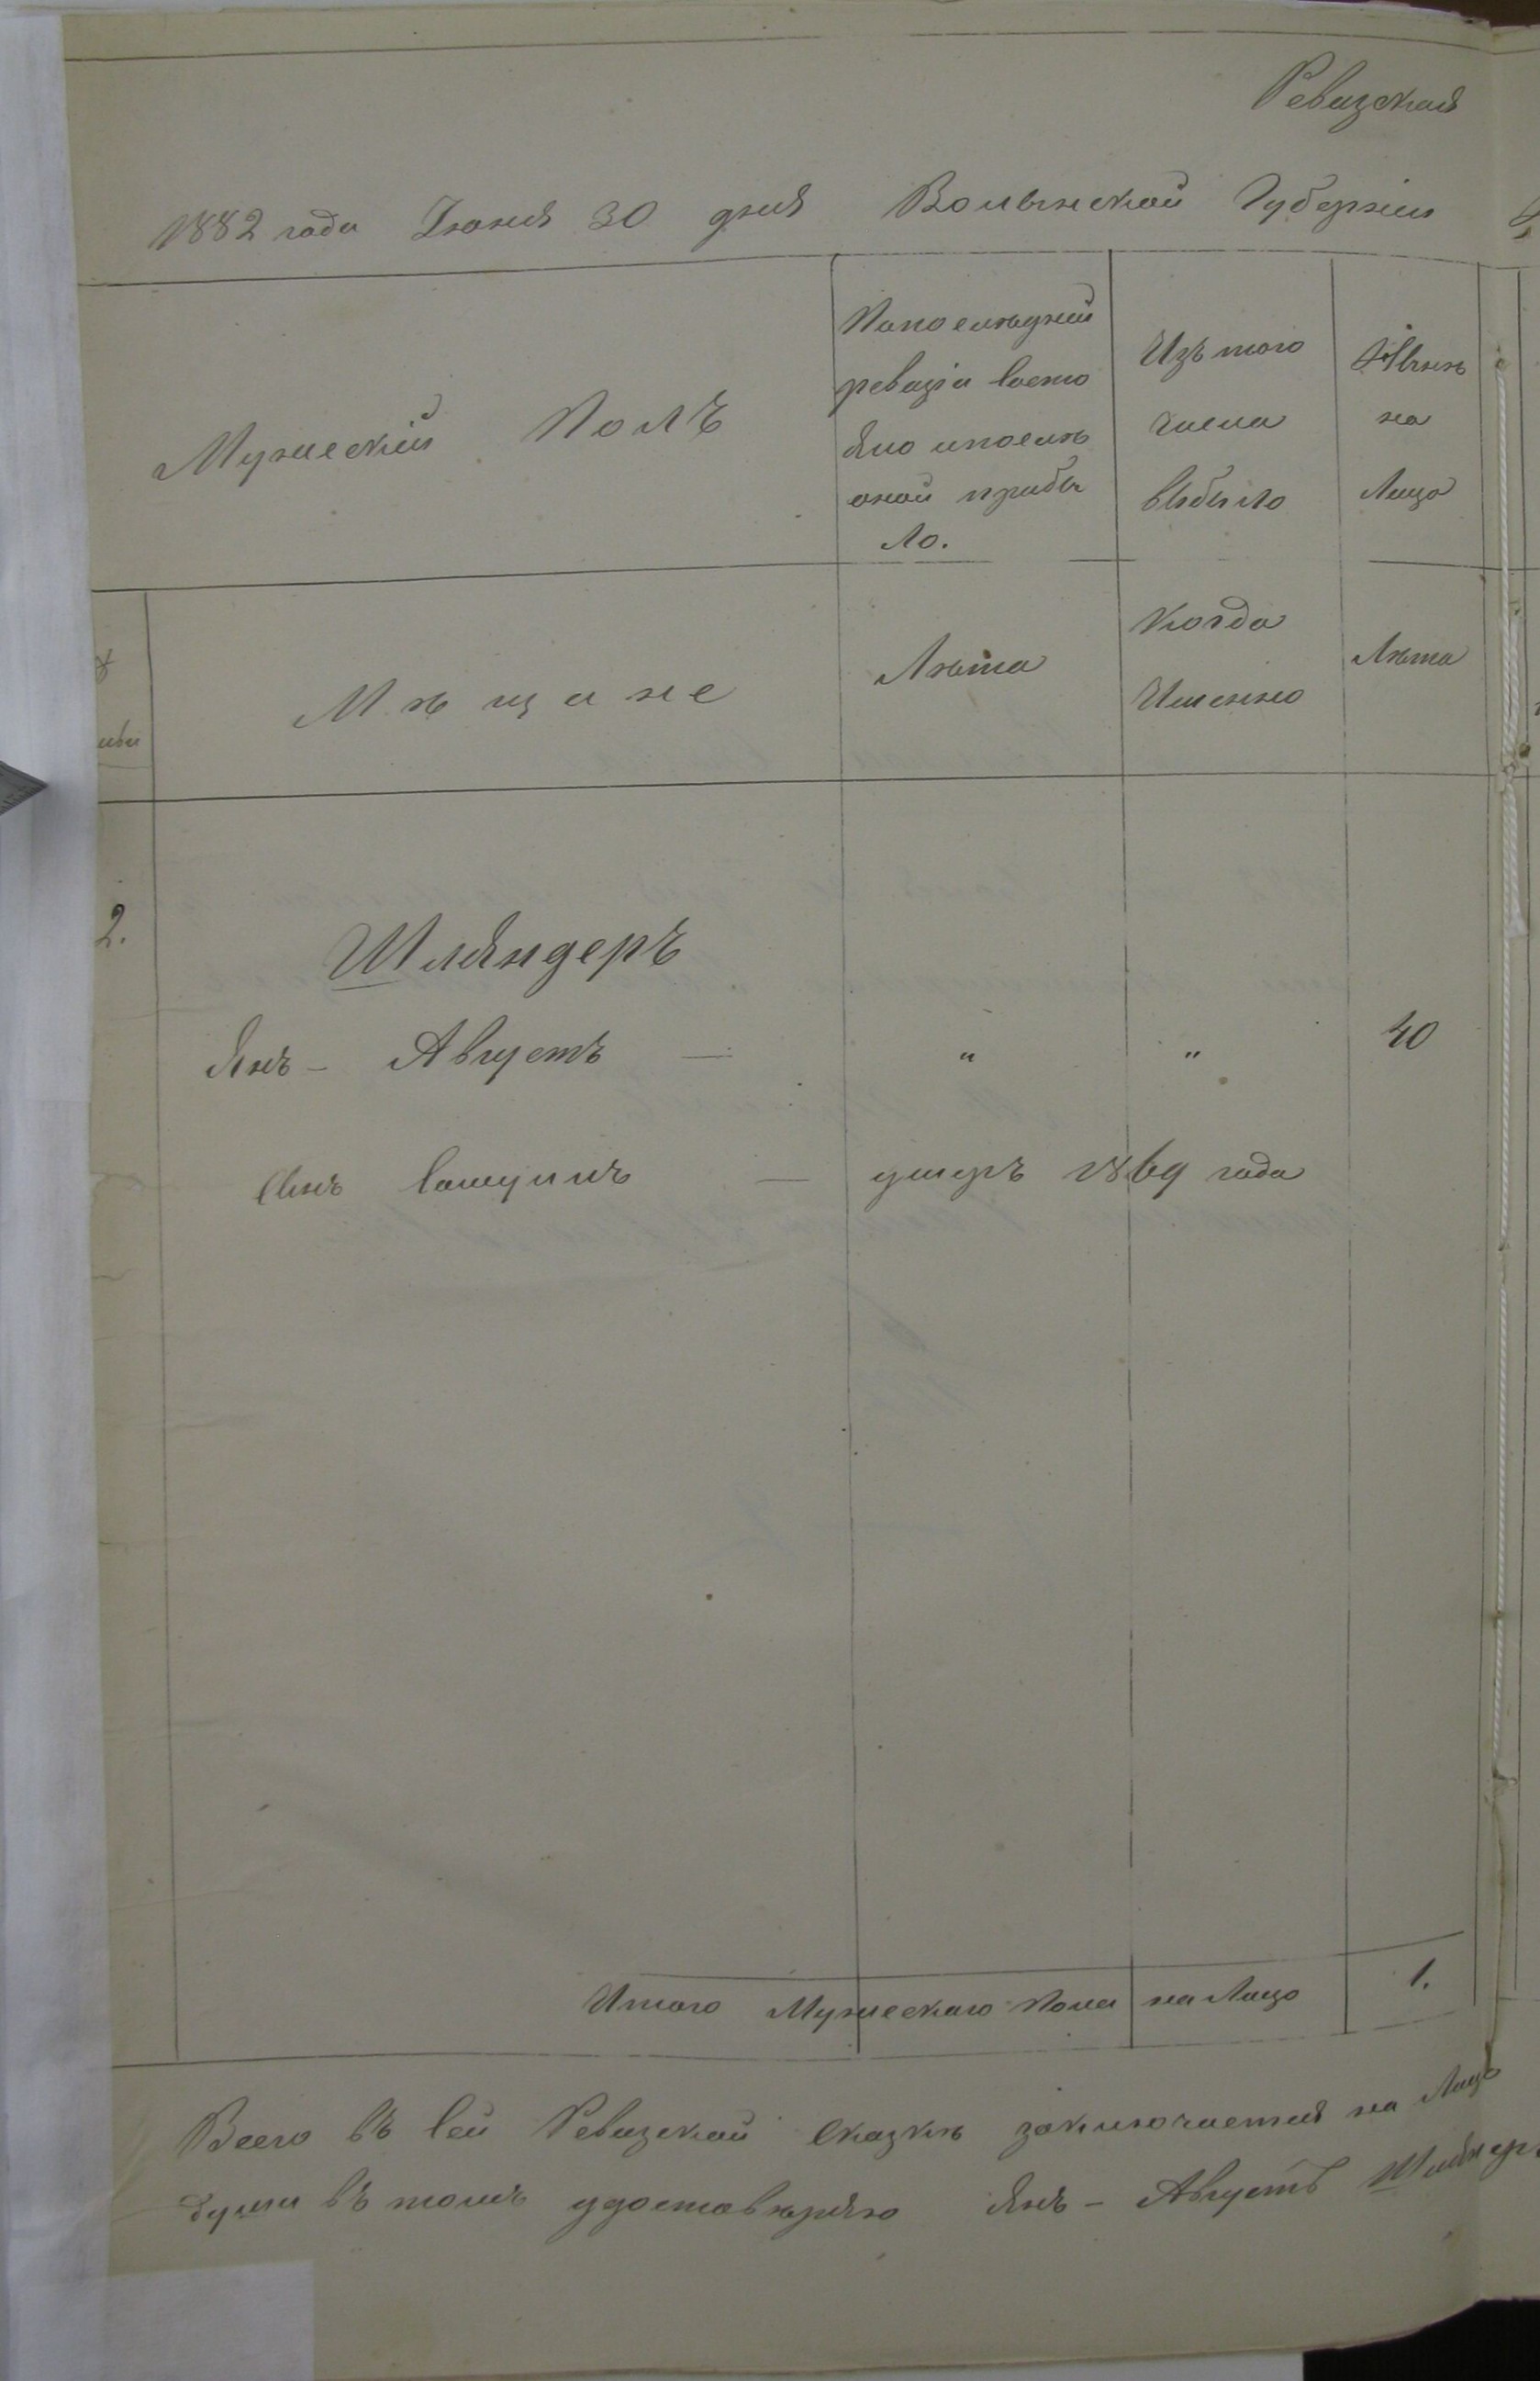 Ревизская
1882 года Іюня 30 дня Волынской Губерніи
Мужескій Полъ
Попослѣдней
ревизіи состо
яло ипослѣ
оной прибы
ло.
Изъ того
числа
выбыло
Нынѣ
на
Лицо
Мѣщане
Лѣта
Когда
Именно
Лѣта
2.
Шляндеръ
Янъ - Августъ — " " 40
Сынъ Самуилъ — умеръ 1869 года
Итого Мужескаго Пола на Лицо 1.
Всего въ сей Ревизской Сказкѣ заключается на Лицо
души въ томъ удостовѣряю Янъ - Августъ